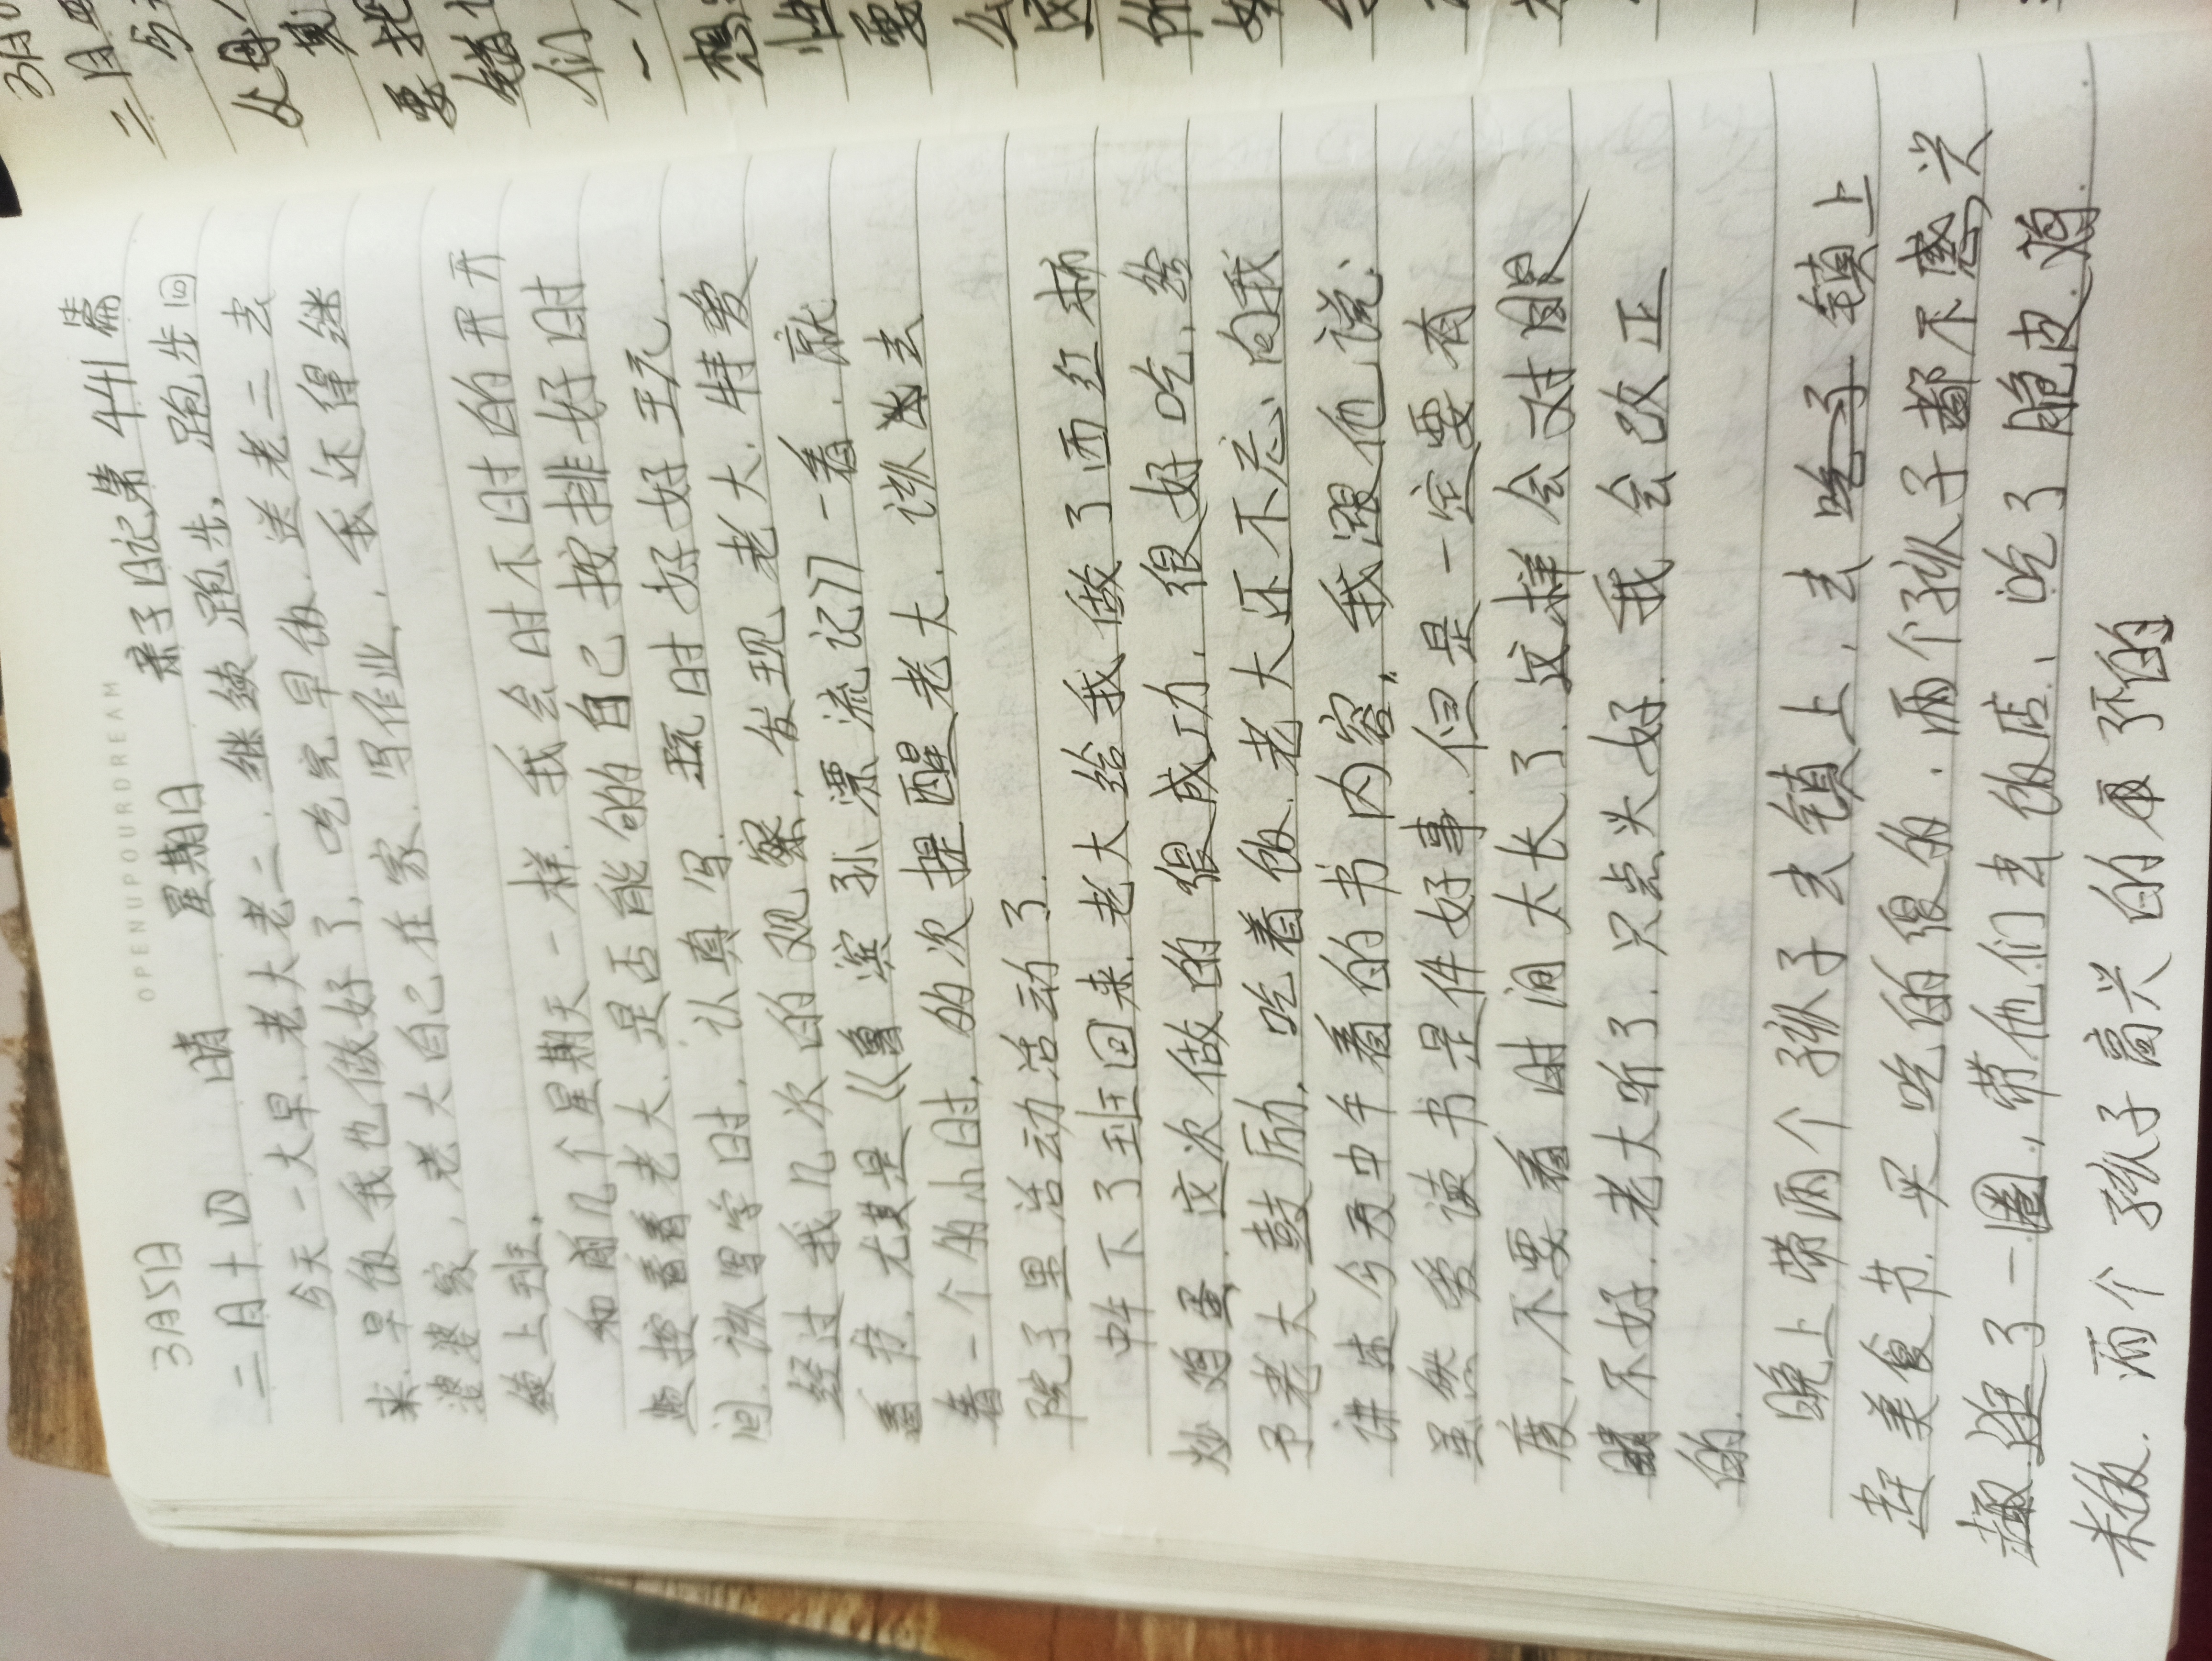 OPENUPYOURDREAM
3月5日 晴 星期日 亲子日记第441篇
二月十四
今天一大早.老大老二.继续跑步,跑步回
来.早饭我也做好了,吃完早饭.送老二去
婆婆家,老大自己在家.写作业,我还得继
续上班,
和前几个星期天一样.我会时不时的开开
控看看老大.是否能的自己按排好时
间.该写字时,认真写.玩时好好玩.
经过我几次的观察,发现老大.特爱
看书.尤其是《鲁滨孙漂流记》一看.就
看一个的小时,的次提醒老大.该去
院子里活动活动了.
中午下了班回来.老大给我做了西红柿
炒鸡蛋.这次做的很成功.很好吃.给
予老大鼓励,吃着饭.老大还不忘向我
讲述今天中午看的书内容,我跟他说:
虽然爱读书是件好事.但是一定要有
度,不要看时间太长了.这样会对眼
睛不好.老大听了.只点头好.我会改正
的.
晚上带两个孩子去镇上,去镇上
赶美食节.买吃的很的.两个孩子都不感兴
趣.逛了一圈,带他们去饭店,吃了脆皮鸡
米饭.两个孩子高兴的不的
3月
二月
父母
要
们
一
想